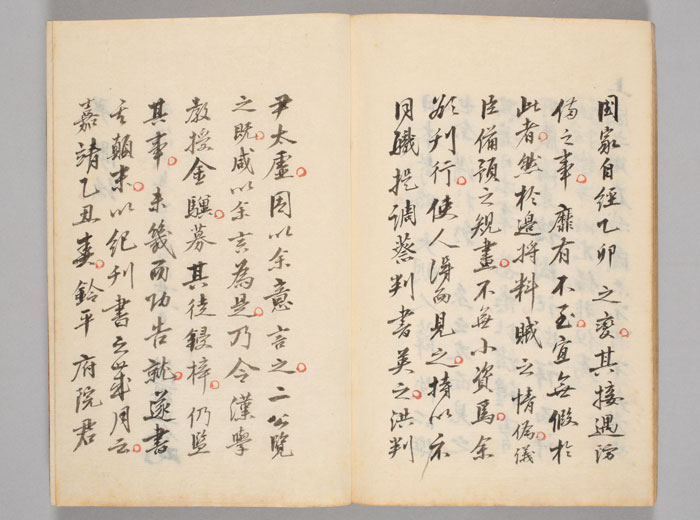 国家自經乙卯之変其接遇防
俻之事靡有不至宜無假於
此者然於邉將料賊之情偏議
臣備預之規畫不無小資焉余
欲刊行使人得而見之持以示
同軄提調蔡判書英之洪判
尹太虚因以余意言之二公覽
之既咸以余言為是乃令漢學
教授金驥募其徒鋟梓仍監
其事未幾而功告就遂書
其顛末以紀刊書之歲月云
嘉靖乙丑 鈴平府院君